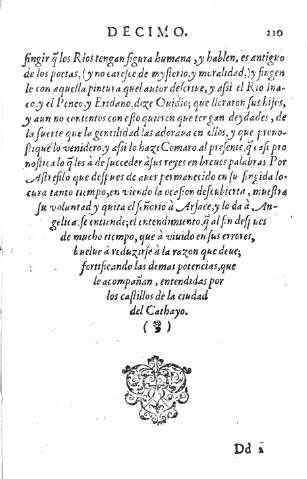 DECIMO. 210
fingir q̃ los Rios tengan figura humana, y hablen, es antiguo
de los poetas, (y no caresce de mysterio, y moralidad,) y fingen
le con aquella pintura que l autor descriue, y asi el Rio Ina-
co y el Peneo, y Eridano, dize Ouidio; que lloraron sus hijos,
y aun no contentos con esto quieren que tengan deydades, de
la suerte que la gentilidad las adoraua en ellos, y que prono-
stiquẽ lo venidero, y asi lo haze Comaro al presente, q̃ casi pro
nostica lo q̃ les à de succeder à sus reyes en breues palabras Por
Astrefilo que despues de auer permanecido en su fingida lo-
cura tanto tiempo, en viendo la ocasion descubierta, muestra
su voluntad y quita el señorio à Arsace, y lo da à An-
gelica. se entiende; el entendimiento, q̃ al fin despues
de mucho tiempo, que à viuido en sus errores,
buelue à reduzirse à la razon que deue;
fortificando las demas potencias, que
le acompañan, entendidas por
los castillos de la ciudad
del Cathayo.
( )
Dd 2